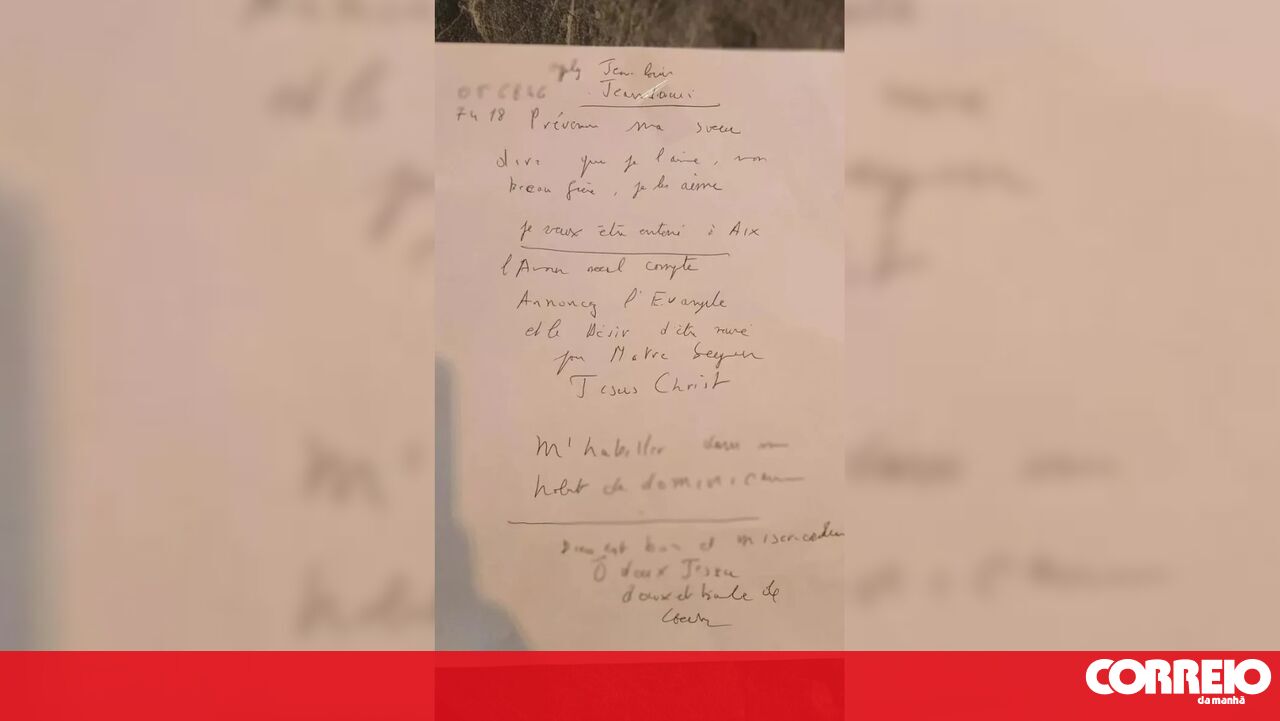 Jean Louis
Jean Louis
74 18 Prévenir ma soeur
dire que je l'aime, mon
beau frère, je les aime
je veux être enterré à Aix
l'Amour seul compte
Annoncez l'Evangile
et le Désir d'être
par Notre Seigneur
Jésus Christ
M'habiller dans un
habit de dominicain
Dieu est bon et miséricordieux
Ô doux Jésus
doux et humble de
coeur
CORREIO
da manhã